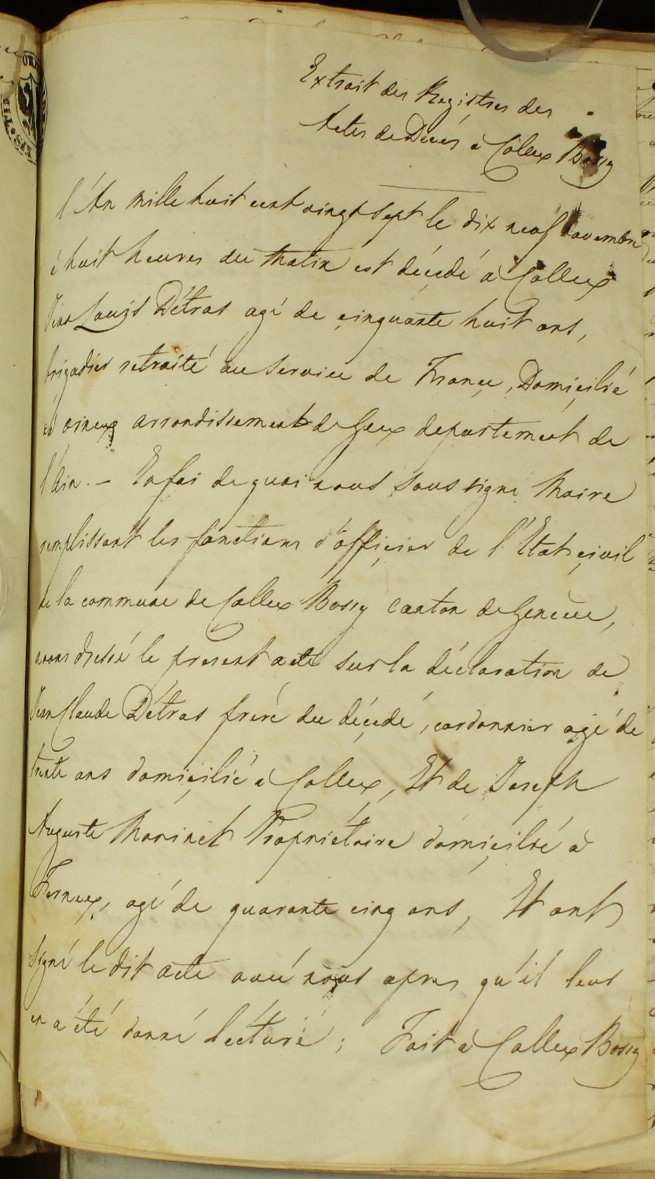 Extrait des Registres des
Actes de Décès à Collex Bossy
l'An mille huit cent vingt sept le dix neuf novembre
à huit heures du Matin est décédé à Collex
Jean Louis Détras agé de cinquante huit ans,
brigadier retraité au service de France, Domicilié
à arrondissement de Gex departement de
l'Ain. — En foi de quoi nous soussigné Maire
remplissant les fonctions d'officier de l'Etat civil
de la commune de Collex Bossy canton de Genève,
avons dressé le present acte sur la déclaration de
Jean Claude Détras frère du décédé, cordonnier agé de
trente ans domicilié à Collex, Et de Joseph
Auguste Propriétaire domicilié à
Ferney, agé de quarante cinq ans, Et ont
signé le dit acte avec nous apres qu'il leur
en a été donné lécture ; Fait à Collex Bossy